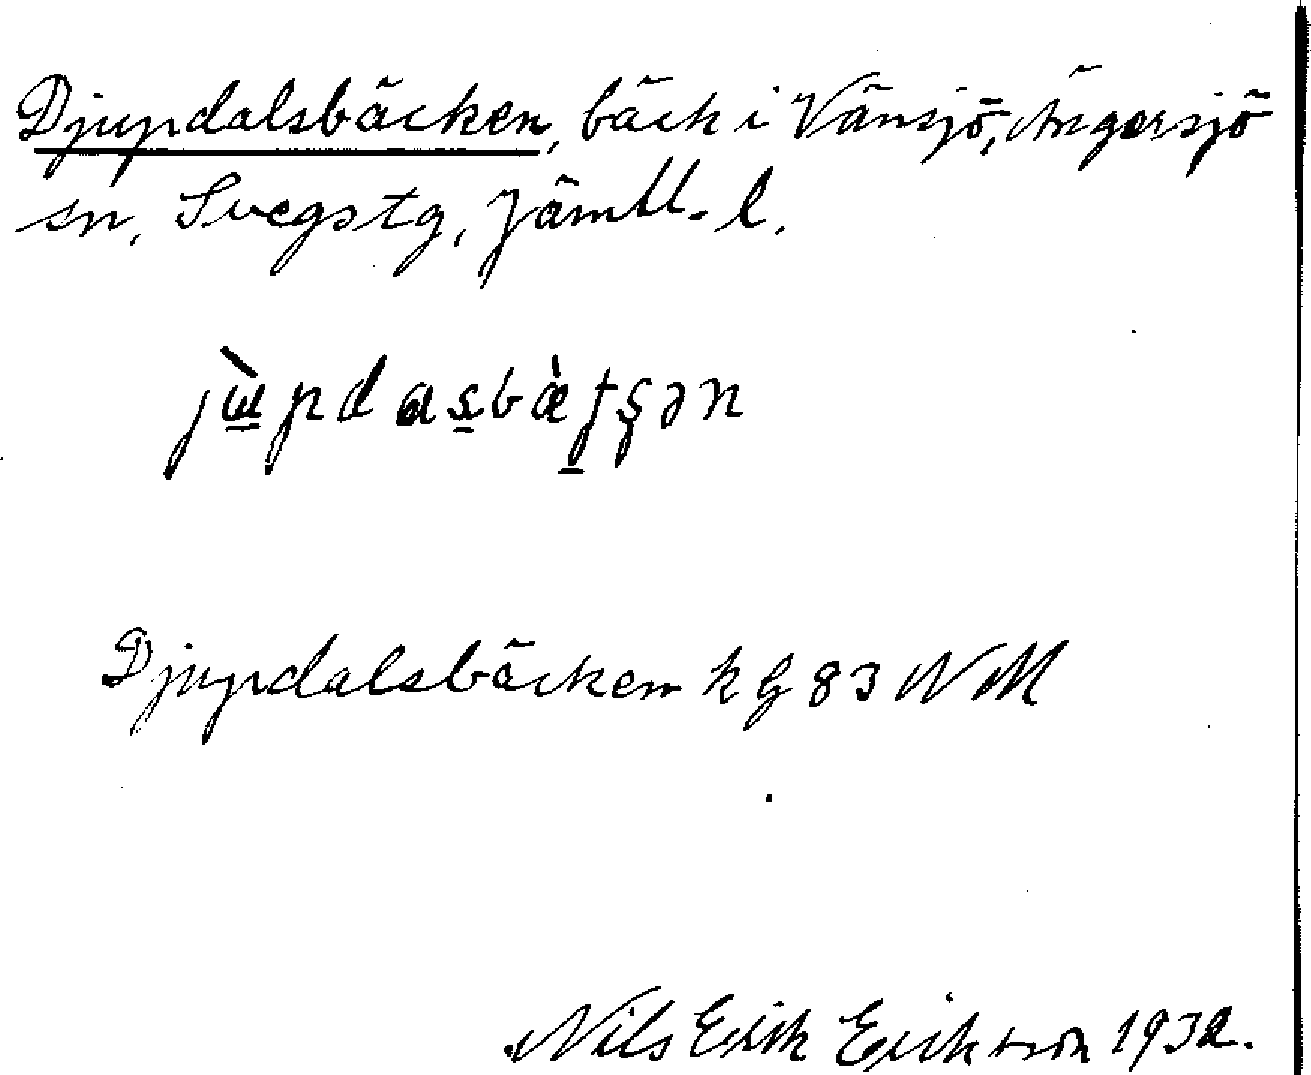 Djupdalsbäcken, bäck i Vänsjö, Ängersjö
sn, Svegs tg, Jämtl. l.
Djupdalsbäcken kg 83 NM
Nils Erik Erikson 1932.